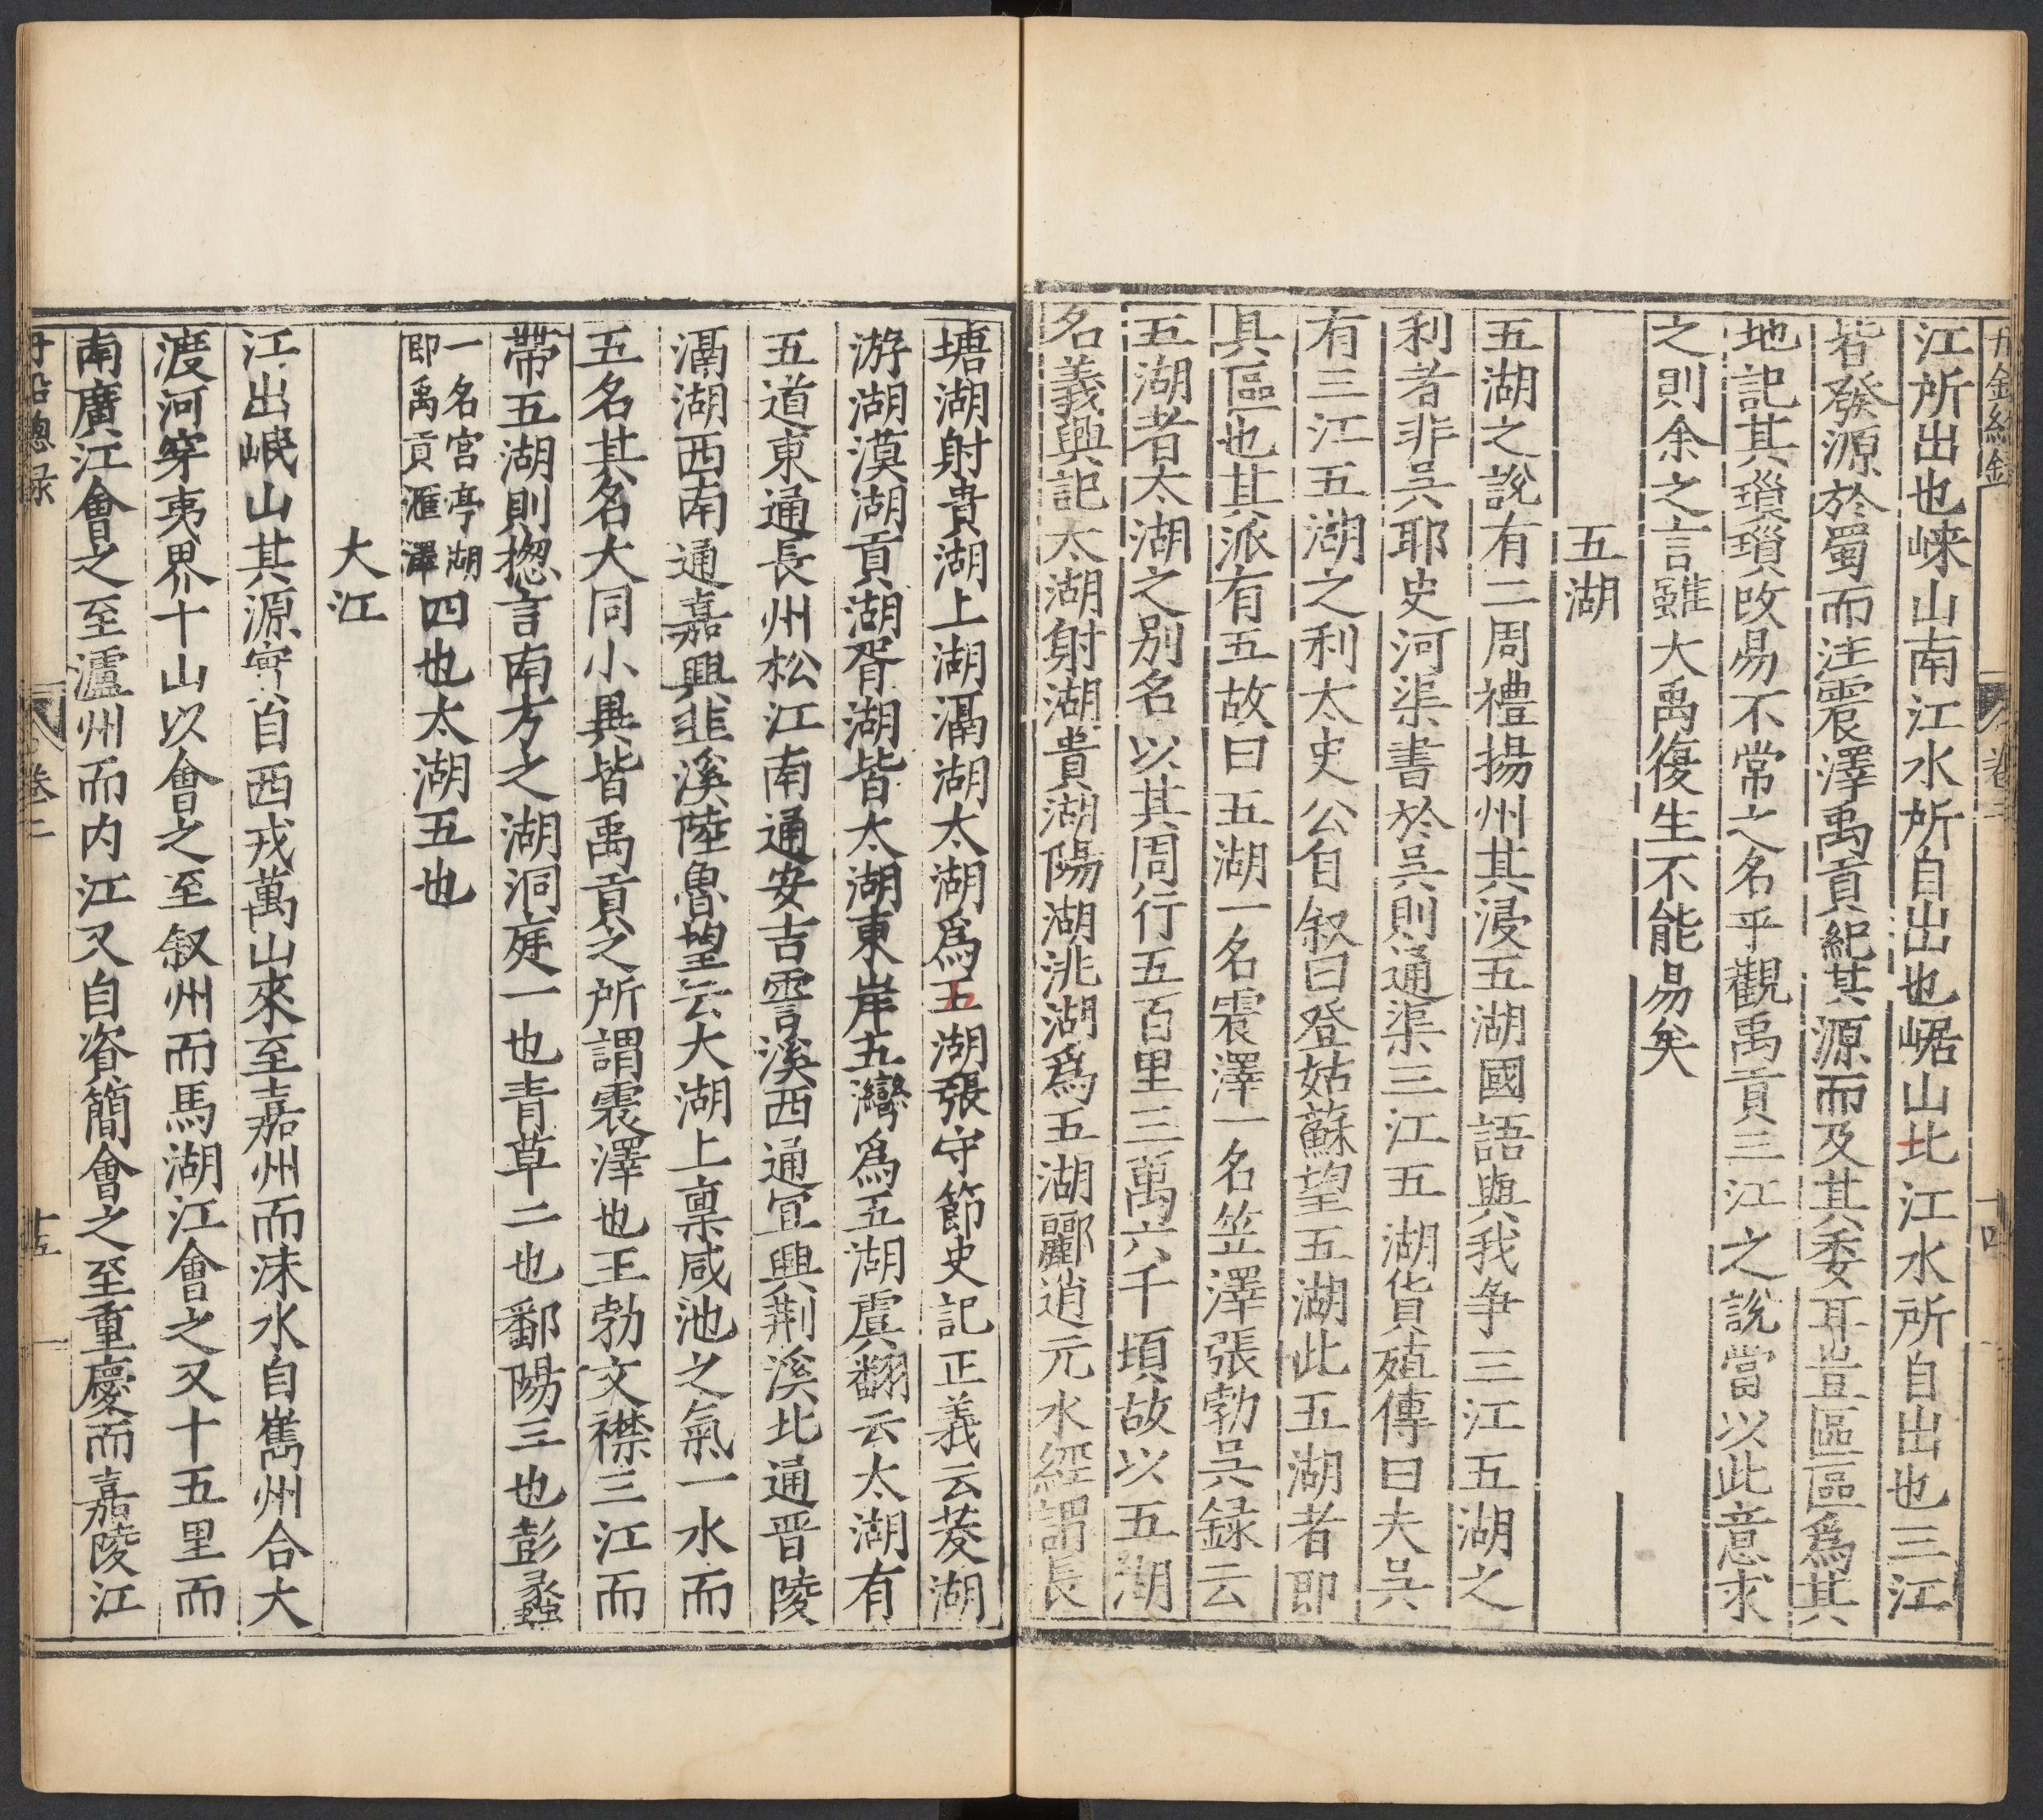 江所出也崍山南江水所自出也崌山北江水所自出也三江
皆發源於蜀而注震澤禹貢紀其源而及其委耳豈區區爲其
地記其瑣瑣改易不常之名乎觀禹貢三江之說當以此意求
之則余之言雖大禹復生不能易矣
五湖
五湖之說有二周禮揚州其浸五湖國語與我争三江五湖之
利者非吳耶史河渠書於吳則通渠三江五湖貨殖傳曰夫吳
有三江五湖之利太史公自叙曰登姑蘇望五湖此五湖者即
具區也其派有五故曰五湖一名震澤一名笠澤張勃吳録云
五湖者太湖之别名以其周行五百里三萬六千頃故以五湖
名義興記太湖射湖貴湖陽湖洮湖爲五湖酈逍元水經謂長
塘湖射貴湖上湖滆湖太湖爲五湖張守節史記正義云菱湖
游湖漠湖貢湖胥湖皆太湖東岸五灣爲五湖虞翻云太湖有
五道東通長州松江南通安吉霅溪西通宜興荆溪北通晋陵
滆湖西南通嘉興韭溪陸魯望云大湖上禀咸池之氣一水而
五名其名大同小異皆禹貢之所謂震澤也王勃文襟三江而
帶五湖則揔言南方之湖洞庭一也青草二也鄱陽三也彭蠡
一名宫亭湖
即禹貢滙澤四也太湖五也
大江
江出岷山其源實自西戎萬山來至嘉州而沫水自嶲州合大
渡河穿夷界十山以會之至叙州而馬湖江會之又十五里而
南廣江會之至瀘州而内江又自資簡會之至重慶而嘉陵江
卷二